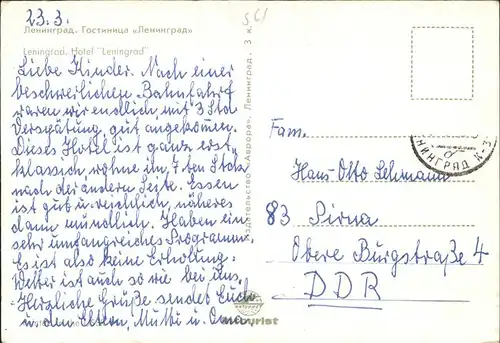 23.3.
Ленинград. Гостиница «Ленинград»
Leningrad. Hotel "Leningrad"
Liebe Kinder. Nach einer
beschwerlichen Bahnfahrt
waren wir endlich, mit 3 Std
Verspätung, gut angekommen.
Dieses Hotel ist ganz erst-
klassich, wohne im 7ten Stock
nach der andern Seite. Essen
ist gut u. reichlich, näheres
dann mündlich. Haben ein
sehr umfangreiches Programm.
Es ist also keine Erholung.
Wetter ist auch so wie bei uns.
Herzliche Grüße sendet Euch
u. den Eltern, Mutti u. Oma
Издательство «Аврора». Ленинград. 3 к.
НИНГРАД К-3
Fam.
Hans-Otto Lehmann
83 Pirna
Obere Burgstraße 4
DDR
intourist